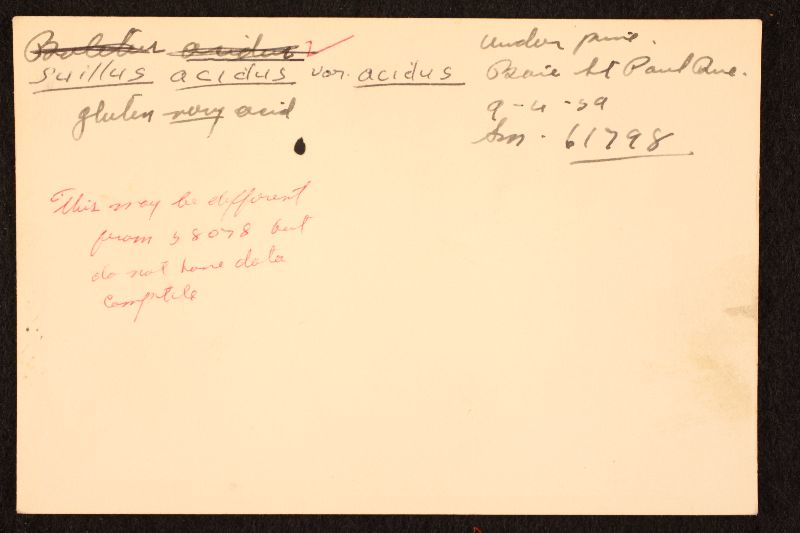 Boletus acidus
Suillus acidus var. acidus
gluten very acid
under pine.
Baie St Paul Que.
9-4-59
Sm. 61798
This may be different
from 58078 but
do not have data
complete